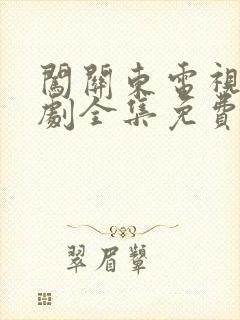 闖關東電視
劇全集免費
翠眉顰